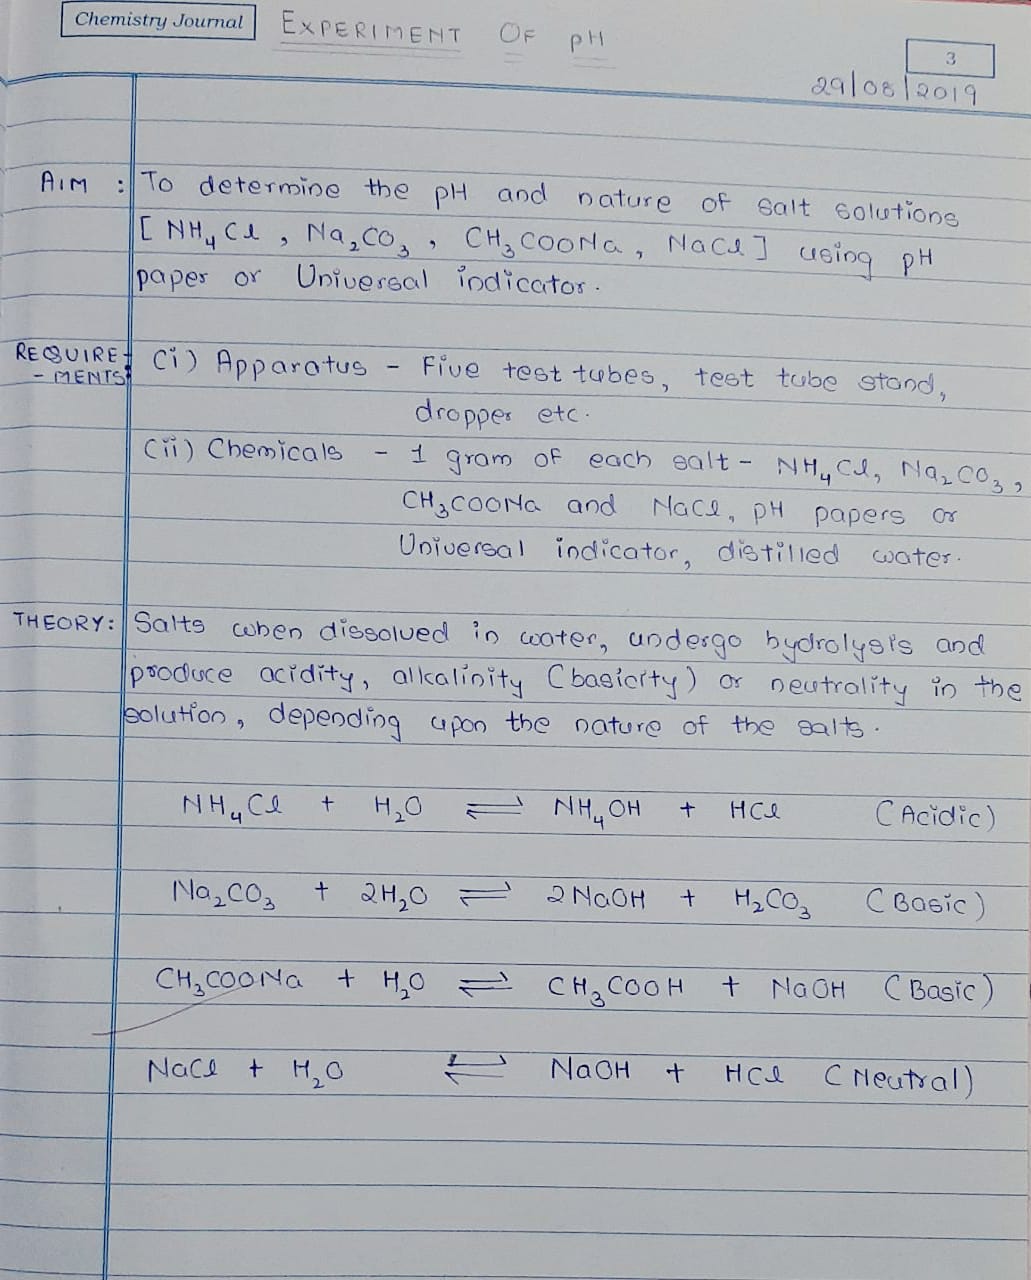 Chemistry Journal
EXPERIMENT OF pH
3
29/08/2019
AIM : To determine the pH and nature of salt solutions
[ NH₄Cl , Na₂CO₃ , CH₃COONa , NaCl ] using pH
paper or Universal indicator.
REQUIRE- (i) Apparatus - Five test tubes, test tube stand,
- MENTS:
dropper etc.
(ii) Chemicals - 1 gram of each salt - NH₄Cl, Na₂CO₃,
CH₃COONa and NaCl, pH papers or
Universal indicator, distilled water.
THEORY: Salts when dissolved in water, undergo hydrolysis and
produce acidity, alkalinity (basicity) or neutrality in the
solution, depending upon the nature of the salts.
NH₄Cl + H₂O ⇌ NH₄OH + HCl (Acidic)
Na₂CO₃ + 2H₂O ⇌ 2NaOH + H₂CO₃ (Basic)
CH₃COONa + H₂O ⇌ CH₃COOH + NaOH (Basic)
NaCl + H₂O ⇌ NaOH + HCl (Neutral)